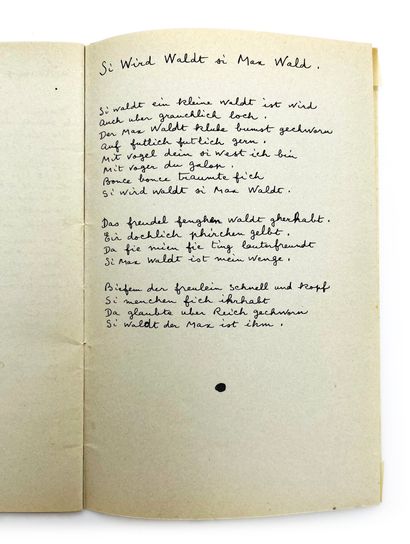 Si Wird Waldt si Max Wald.
Si waldt ein kleine waldt ist wird
Auch uber grauchlich loch.
Der Max Waldt kluke bumst gechworn
Auf futlich futlich gern.
Mit vogel dein si west ich bin
Mit voger du galop.
Bonce bonce traumte fich
Si wird waldt si Max Waldt.
Das freudel fenghen waldt gherhabt.
Eir dochlich phirchen gelbt.
Da fie mien fie ting lauterfreundt
Si Max Waldt ist mein wenge.
Biefem der freulein schnell und kopf
Si menchen fich ihrhabt
Da glaubte uber Reich gechworn
Si waldt der Max ist ihm.